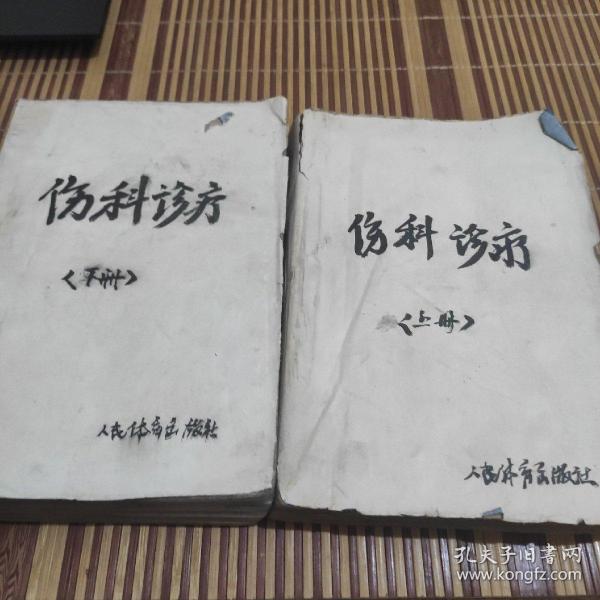 伤科诊疗
<下册>
人民体育出版社
伤科诊疗
<上册>
人民体育出版社
孔夫子旧书网
www.kongfz.com